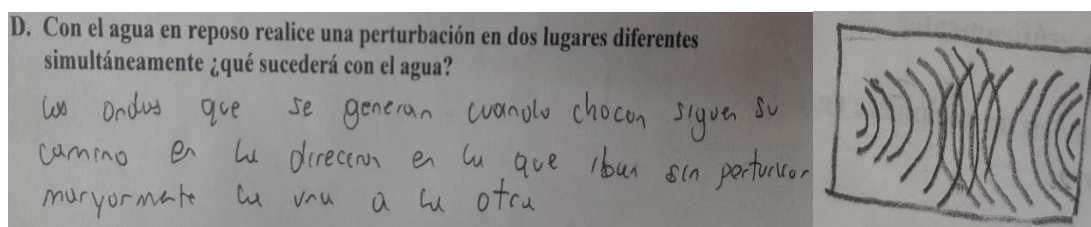 D. Con el agua en reposo realice una perturbación en dos lugares diferentes
simultáneamente ¿qué sucederá con el agua?
Las ondas que se generan cuando chocan siguen su
camino en la direccion en la que iban sin perturbar
maryormente la una a la otra